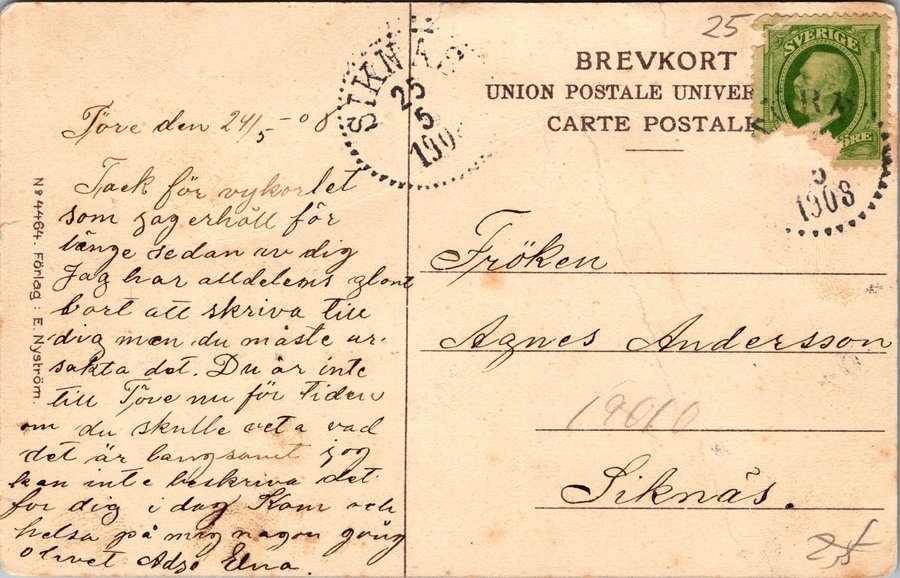 25
BREVKORT
UNION POSTALE UNIVER
CARTE POSTALE
SVERIGE
ÖRE
SIKNÄS
25
5
1908
5
1908
Töre den 24/5 -08
Tack för vykortet
som jag erhöll för
länge sedan av dig
Jag har alldeles glömt
bort att skriva till
dig men du måste ur-
säkta det. Du är inte
till Töre nu för tiden
om du skulle veta vad
det är langsamt jag
kan inte beskriva det
för dig i dag Kom och
helsa på mig nagon gång
Elna.
Nº 4464. Förlag: E. Nyström.
Fröken
Agnes Andersson
19010
Siknäs.